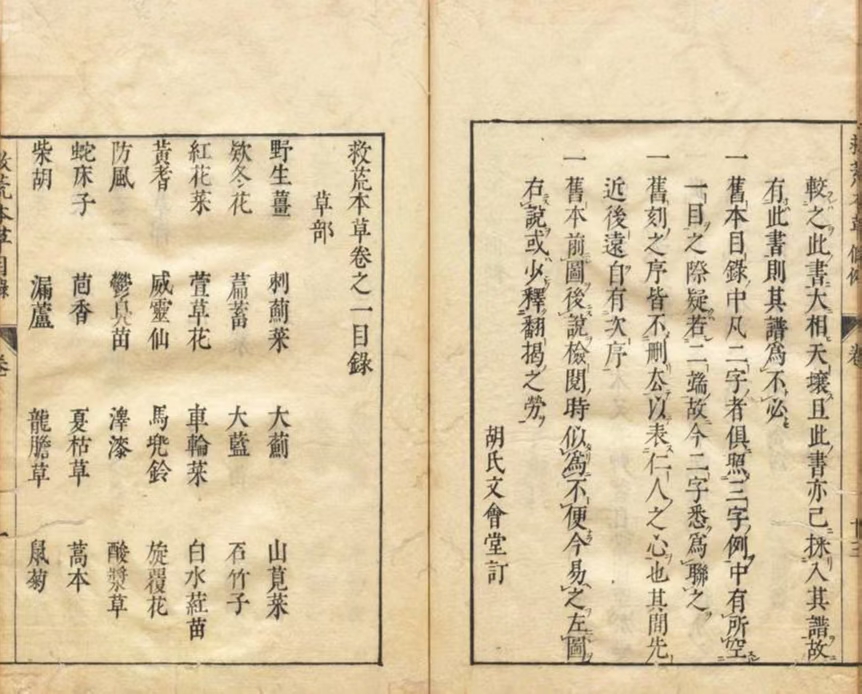 較之此書大相天壤且此書亦已採入其譜故
有此書則其譜爲不必
一舊本目錄中凡二字者俱照三字例中有所空
一目之際疑若二端故今二字悉爲聯之
一舊刻之序皆不刪厺以表仁人之心也其間先
近後遠自有次序
一舊本前圖後說檢閱時似爲不便今易之左圖
右說或少釋翻揭之勞
胡氏文會堂訂
救荒本草卷之一目錄
草部
野生薑 刺薊菜 大薊 山莧菜
欵冬花 萹蓄 大藍 石竹子
紅花菜 萱草花 車輪菜 白水葒苗
黃耆 威靈仙 馬兜鈴 旋覆花
防風 鬱臭苗 澤漆 酸漿草
蛇床子 茴香 夏枯草 蒿本
柴胡 漏蘆 龍膽草 鼠菊
救荒本草目錄 卷一